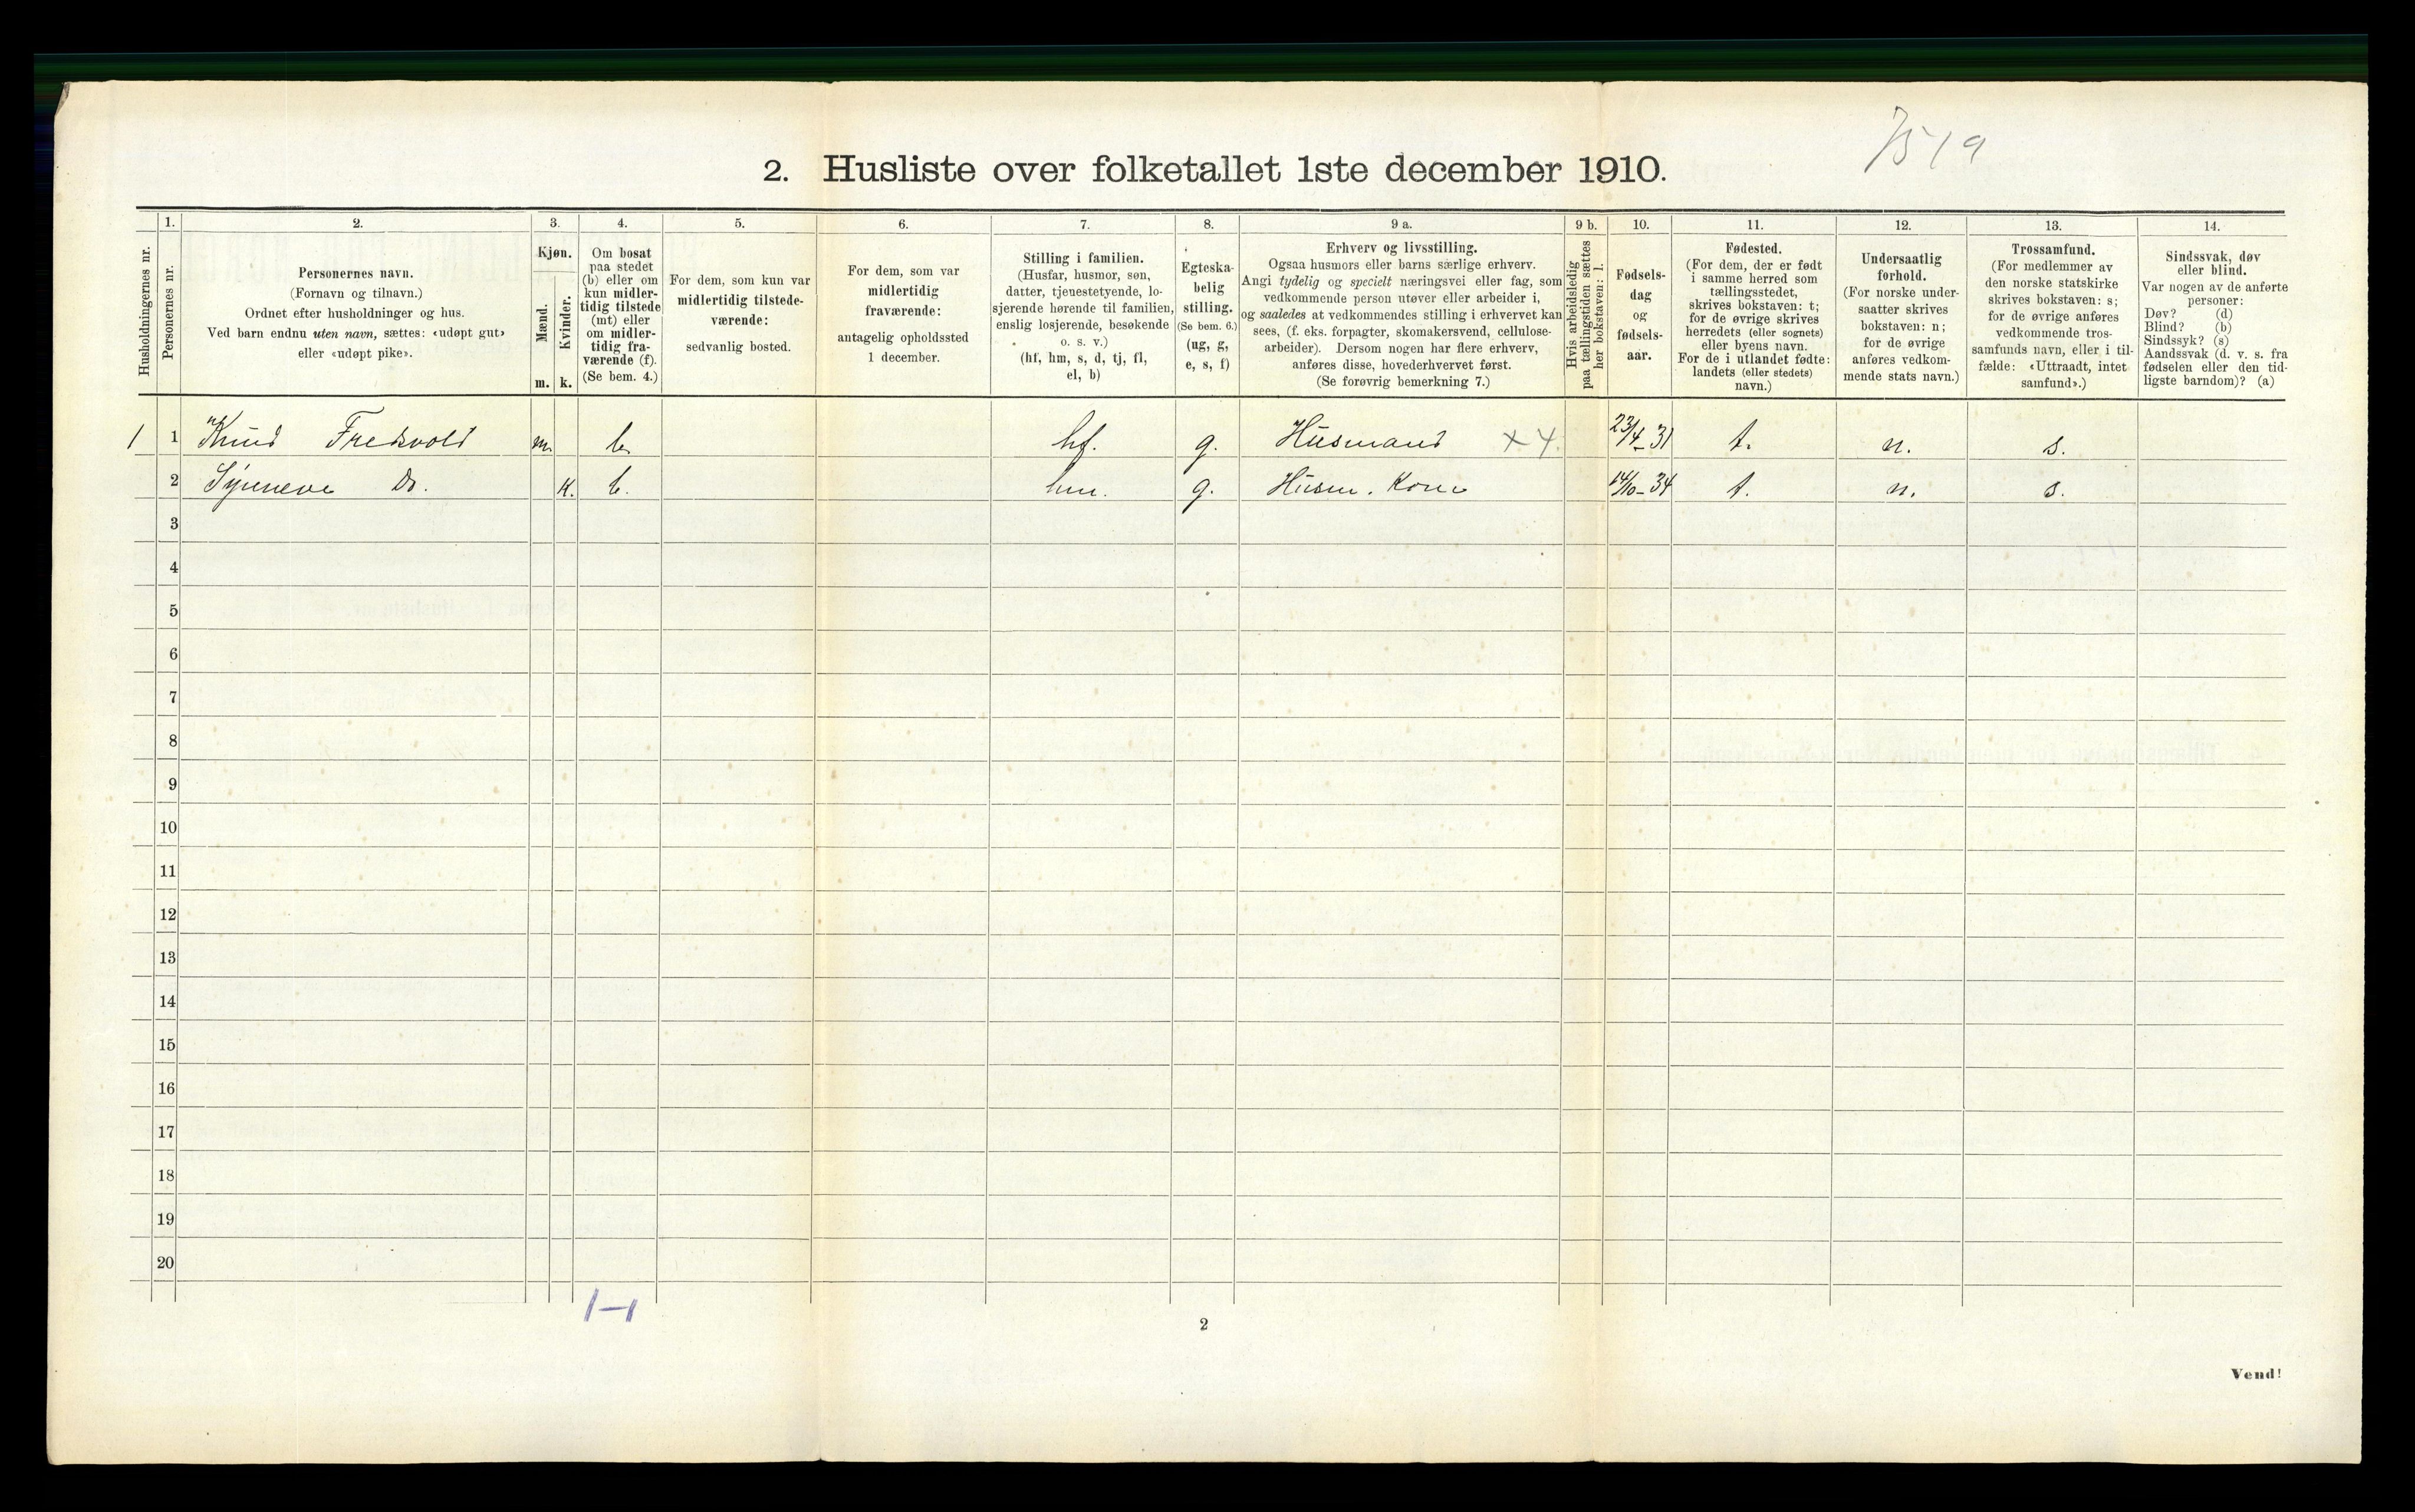 7519
2. Husliste over folketallet 1ste december 1910.
Husholdningernes nr.
1.
Personernes nr.
2.
Personernes navn.
(Fornavn og tilnavn.)
Ordnet efter husholdninger og hus.
Ved barn endnu uten navn, sættes: «udøpt gut»
eller «udøpt pike».
3.
Kjøn.
Mænd.
Kvinder.
m. k.
4.
Om bosat
paa stedet
(b) eller om
kun midler-
tidig tilstede
(mt) eller
om midler-
tidig fra-
værende (f).
(Se bem. 4.)
5.
For dem, som kun var
midlertidig tilstede-
værende:
sedvanlig bosted.
6.
For dem, som var
midlertidig
fraværende:
antagelig opholdssted
1 december.
7.
Stilling i familien.
(Husfar, husmor, søn,
datter, tjenestetyende, lo-
sjerende hørende til familien,
enslig losjerende, besøkende
o. s. v.)
(hf, hm, s, d, tj, fl,
el, b)
8.
Egteska-
belig
stilling.
(Se bem. 6.)
(ug, g,
e, s, f)
9 a.
Erhverv og livsstilling.
Ogsaa husmors eller barns særlige erhverv.
Angi tydelig og specielt næringsvei eller fag, som
vedkommende person utøver eller arbeider i,
og saaledes at vedkommendes stilling i erhvervet kan
sees, (f. eks. forpagter, skomakersvend, cellulose-
arbeider). Dersom nogen har flere erhverv,
anføres disse, hovederhvervet først.
(Se forøvrig bemerkning 7.)
9 b.
Hvis arbeidsledig
paa tællingstiden sættes
her bokstaven: l.
10.
Fødsels-
dag
og
fødsels-
aar.
11.
Fødested.
(For dem, der er født
i samme herred som
tællingsstedet,
skrives bokstaven: t;
for de øvrige skrives
herredets (eller sognets)
eller byens navn.
For de i utlandet fødte:
landets (eller stedets)
navn.)
12.
Undersaatlig
forhold.
(For norske under-
saatter skrives
bokstaven: n;
for de øvrige
anføres vedkom-
mende stats navn.)
13.
Trossamfund.
(For medlemmer av
den norske statskirke
skrives bokstaven: s;
for de øvrige anføres
vedkommende tros-
samfunds navn, eller i til-
fælde: «Uttraadt, intet
samfund».)
14.
Sindssvak, døv
eller blind.
Var nogen av de anførte
personer:
Døv? (d)
Blind? (b)
Sindssyk? (s)
Aandssvak (d. v. s. fra
fødselen eller den tid-
ligste barndom)? (a)
1 1 Knud Fredsvold m. b. hf. g. Husmand × 4. 23/4-31 t. n. s.
2 Synneve Do. k. b. hm. g. Husm. Kone 14/10-34 t. n. s.
3
4
5
6
7
8
9
10
11
12
13
14
15
16
17
18
19
20
1-1
2
Vend!